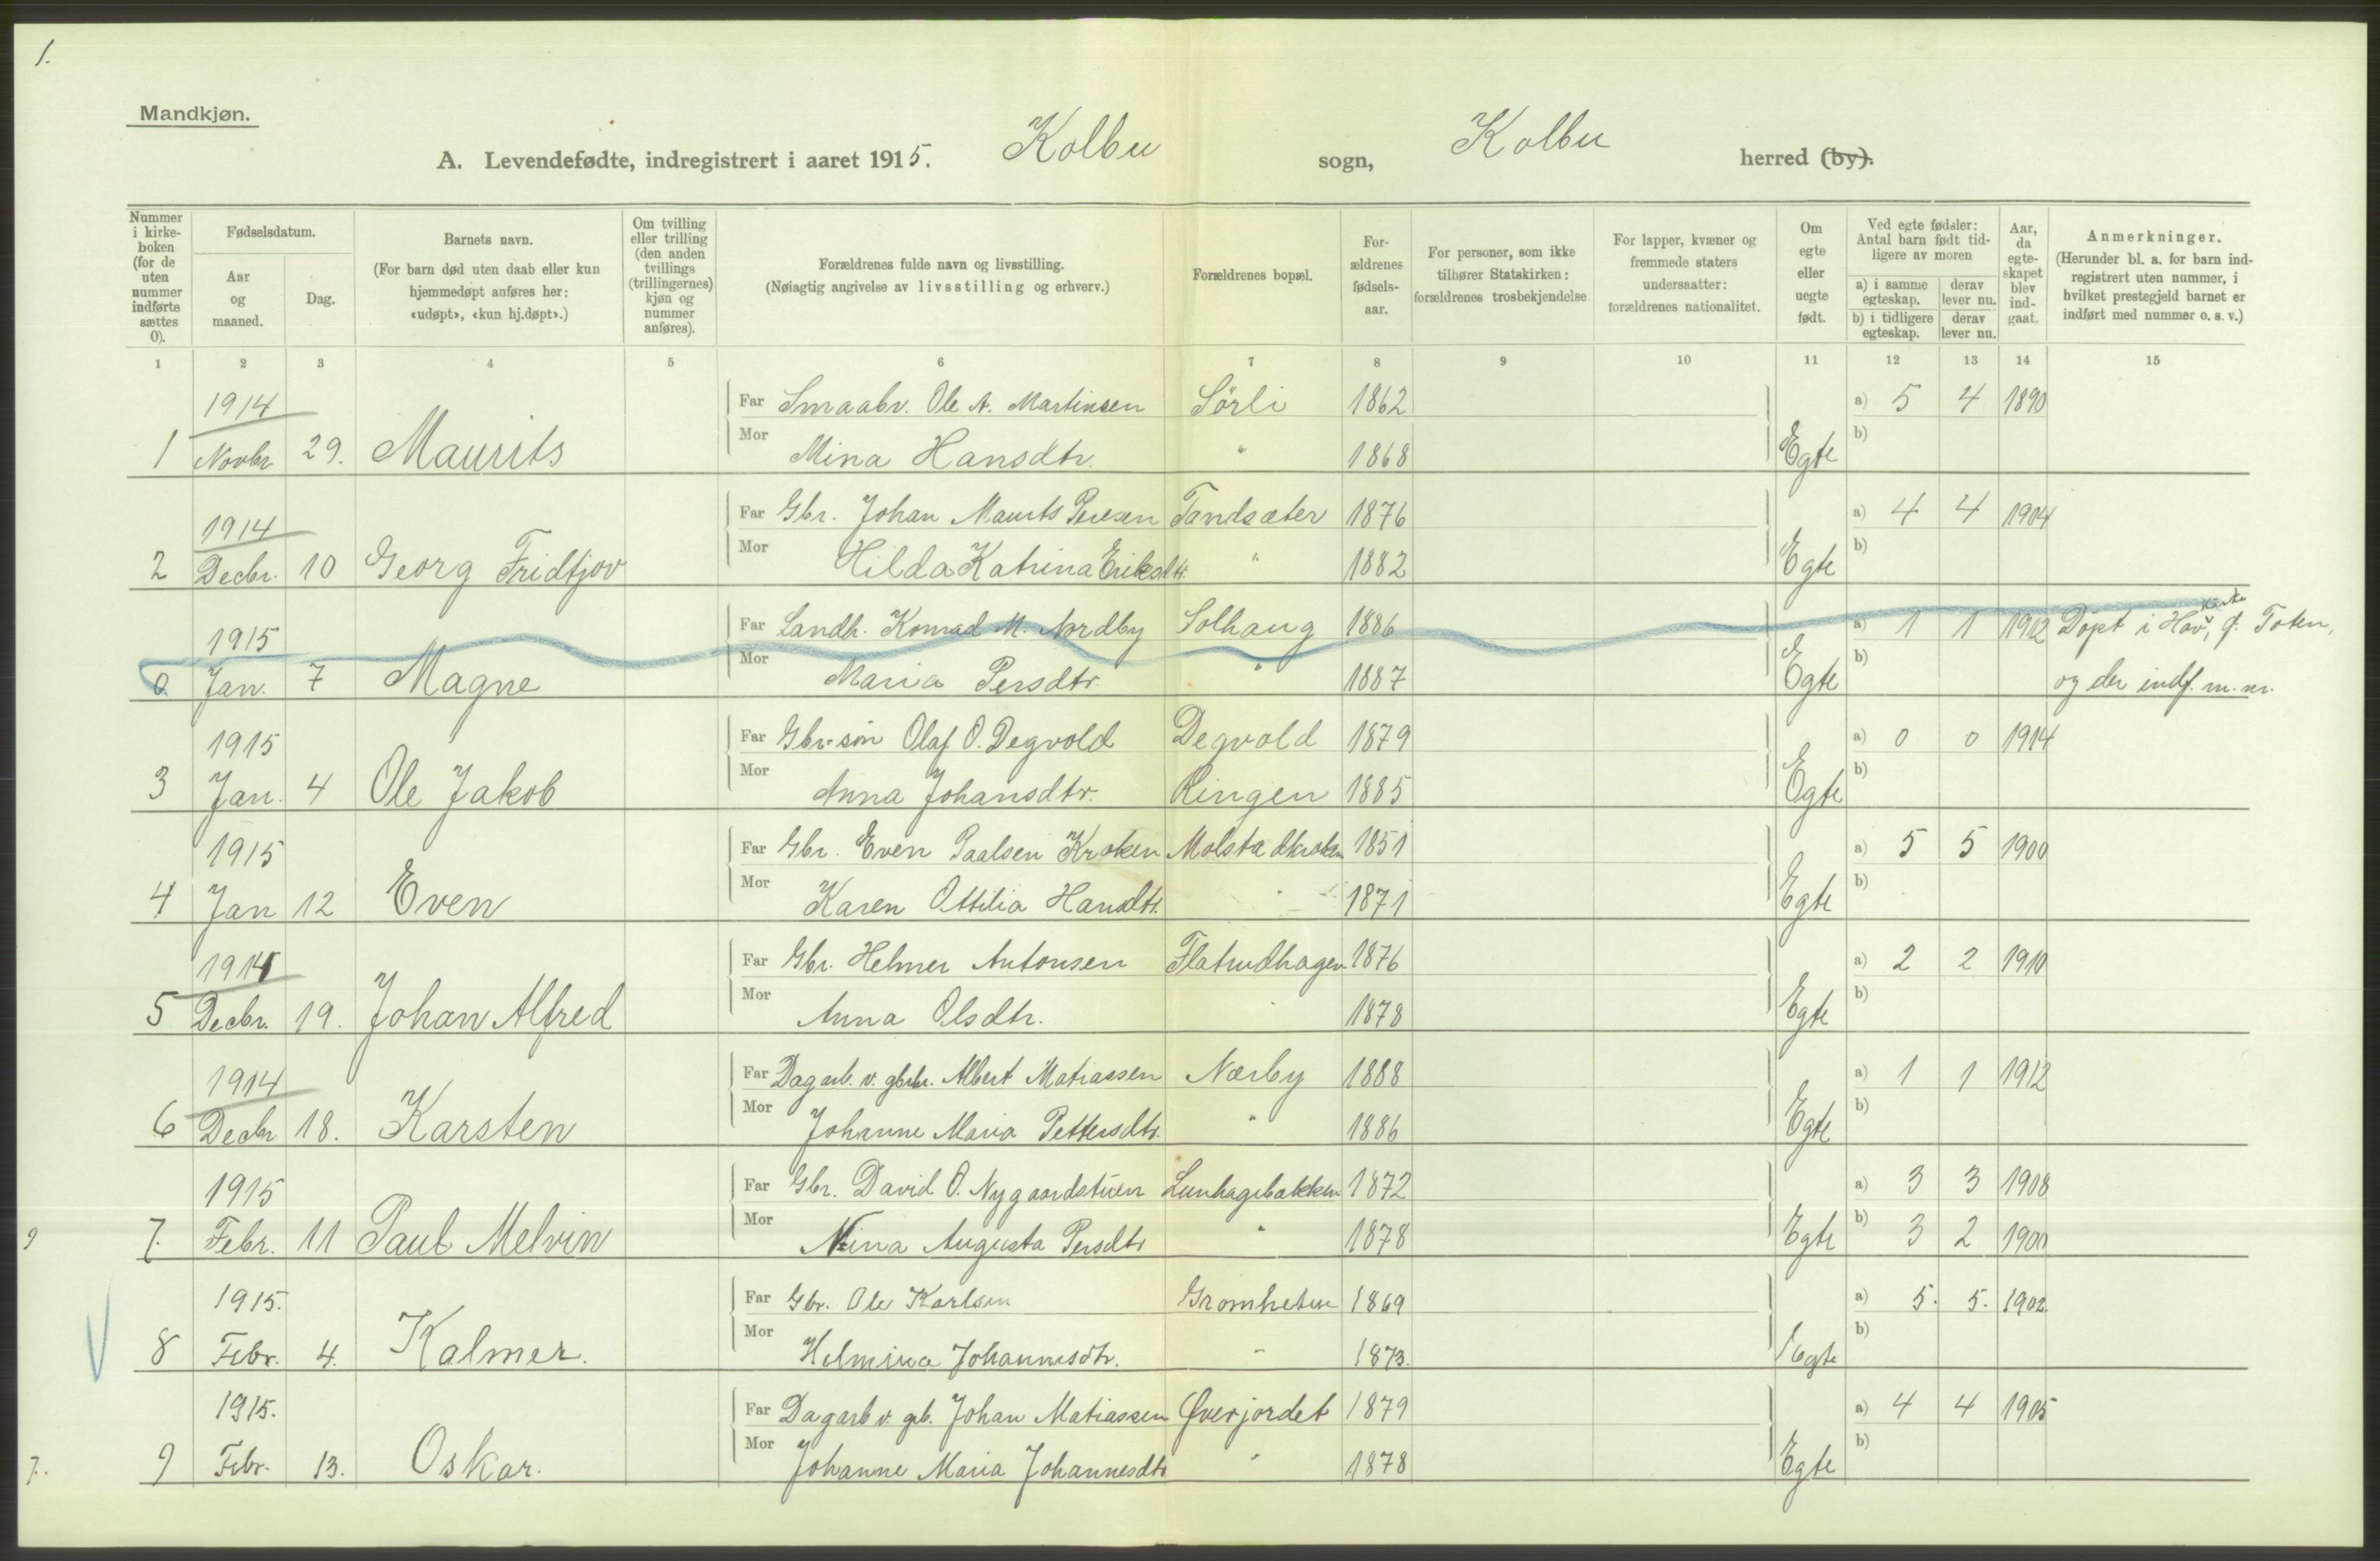 1.
Mandkjøn.
A. Levendefødte, indregistrert i aaret 1915. Kolbu sogn, Kolbu herred (by).
Nummer i kirke-boken (for de uten nummer indførte sættes 0).
Fødselsdatum.
Aar og maaned.
Dag.
Barnets navn.
(For barn død uten daab eller kun hjemmedøpt anføres her: «udøpt», «kun hj.døpt».)
Om tvilling eller trilling (den anden tvillings (trillingernes) kjøn og nummer anføres).
Forældrenes fulde navn og livsstilling.
(Nøiagtig angivelse av livsstilling og erhverv.)
Forældrenes bopæl.
For-ældrenes fødsels-aar.
For personer, som ikke tilhører Statskirken: forældrenes trosbekjendelse.
For lapper, kvæner og fremmede staters undersaatter: forældrenes nationalitet.
Om egte eller uegte født.
Ved egte fødsler: Antal barn født tid-ligere av moren
a) i samme egteskap. derav lever nu.
b) i tidligere egteskap. derav lever nu.
Aar, da egte-skapet blev ind-gaat.
Anmerkninger.
(Herunder bl. a. for barn ind-registrert uten nummer, i hvilket prestegjeld barnet er indført med nummer o. s. v.)
1 2 3 4 5 6 7 8 9 10 11 12 13 14 15
1914 Far Smaabr. Ole A. Martinsen Sörli 1862 a) 5 4 1890
1 Novbr. 29. Maurits Mor Mina Hansdtr. " 1868 Egte b)
1914 Far Gbr. Johan Maurits Persen Tandsæter 1876 a) 4 4 1904
2 Decbr. 10 Georg Fridtjov Mor Hilda Katrina Eriksdtr. " 1882 Egte b)
1915 Far Landh. Konrad M. Nordby Solhaug 1886 a) 1 1 1912 Döpt i Hov kirke, . Toten,
0 Jan. 7 Magne Mor Maria Persdtr. " 1887 Egte b) og der indf. m. nr.
1915 Far Gbr.-sön Olaf O. Degvold Degvold 1879 a) 0 0 1914
3 Jan. 4 Ole Jakob Mor Anna Johansdtr. Ringen 1885 Egte b)
1915 Far Gbr. Even Paalsen Kroken Molstadkroken 1851 a) 5 5 1900
4 Jan 12 Even Mor Karen Ottilia Hansdtr. " 1871 Egte b)
1914 Far Gbr. Helmer Antonsen Flatrudhagen 1876 a) 2 2 1910
5 Decbr. 19. Johan Alfred Mor Anna Olsdtr. " 1878 Egte b)
1914 Far Dagarb. v. gbrbr. Albert Matiassen Nærby 1888 a) 1 1 1912
6 Decbr 18. Karsten Mor Johanne Maria Pettersdtr. " 1886 Egte b)
1915 Far Gbr. David O. Nygaardstuen Lunhagebakken 1872 a) 3 3 1908
9 7. Febr. 11 Paul Melvin Mor Nina Augusta Persdtr " 1878 Egte b) 3 2 1900
1915. Far Gbr. Ole Karlsen 1869 a) 5. 5. 1902.
8 Febr. 4. Kalmer. Mor Helmina Johannesdtr. " 1873. Egte b)
1915. Far Dagarb v. gb. Johan Matiassen Øverjordet 1879 a) 4 4 1905
7. 9 Febr. 13. Oskar. Mor Johanne Maria Johannesdtr " 1878 Egte b)